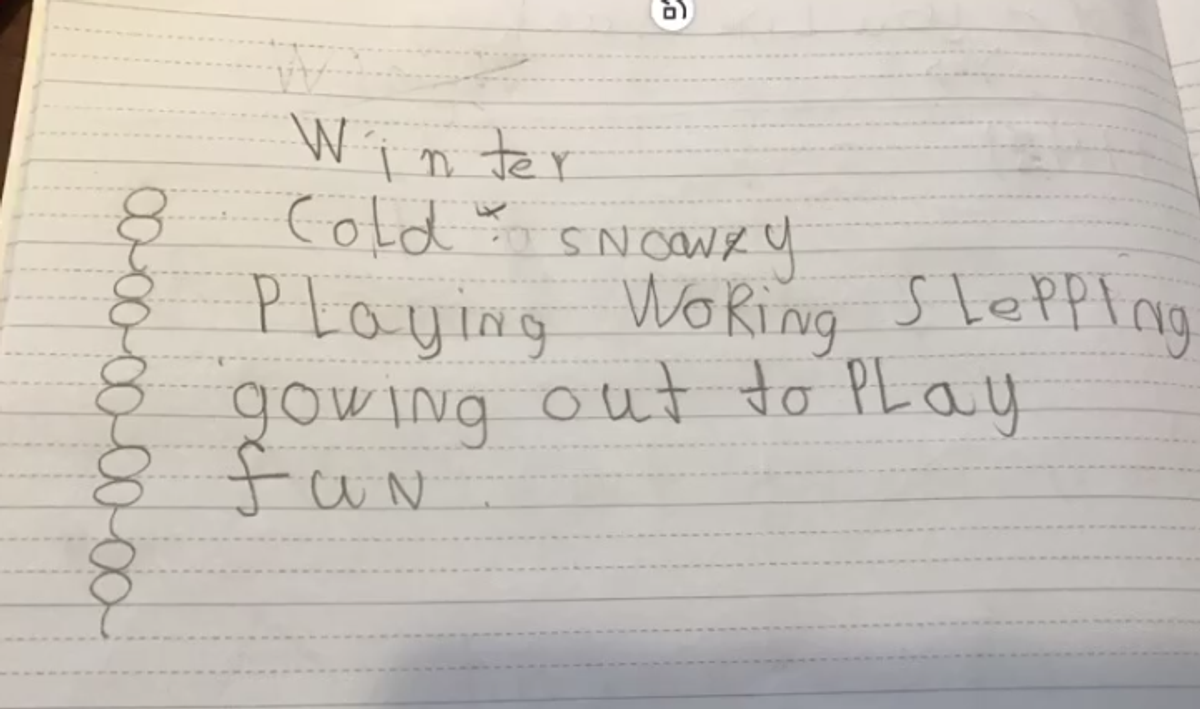 Winter
Cold snowy
Playing Woking Slepping
gowing out to Play
fun.